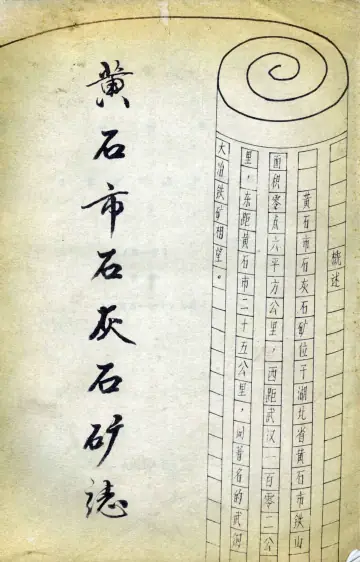 黄石市石灰石矿誌
概述
黄石市石灰石矿位于湖北省黄石市铁山
面积零点六平方公里，西距武汉一百零二公
里，东距黄石市二十五公里，同著名的武钢
大冶铁矿相望。